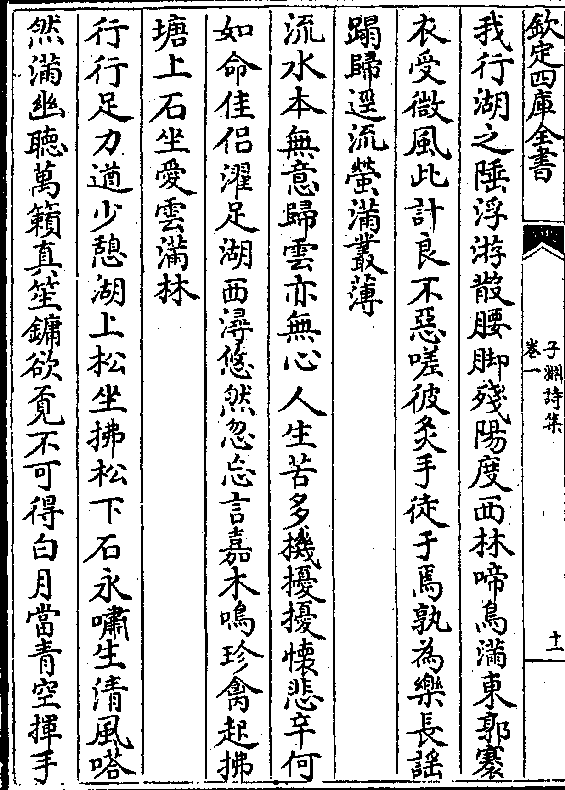 欽定四庫全書
子淵詩集
卷一
十一
我行湖之陲浮游散腰脚殘陽度西林啼鳥滿東郭褰
衣受微風此計良不惡嗟彼炙手徒于焉孰為樂長謡
蹋歸逕流螢滿叢薄
流水本無意歸雲亦無心人生苦多機擾擾懐悲辛何
如命佳侣濯足湖西潯悠然忽忘言嘉木鳴珍禽起拂
塘上石坐愛雲滿林
行行足力遒少憩湖上松坐拂松下石永嘯生清風嗒
然滿幽聽萬籟真笙鏞欲覔不可得白月當青空揮手